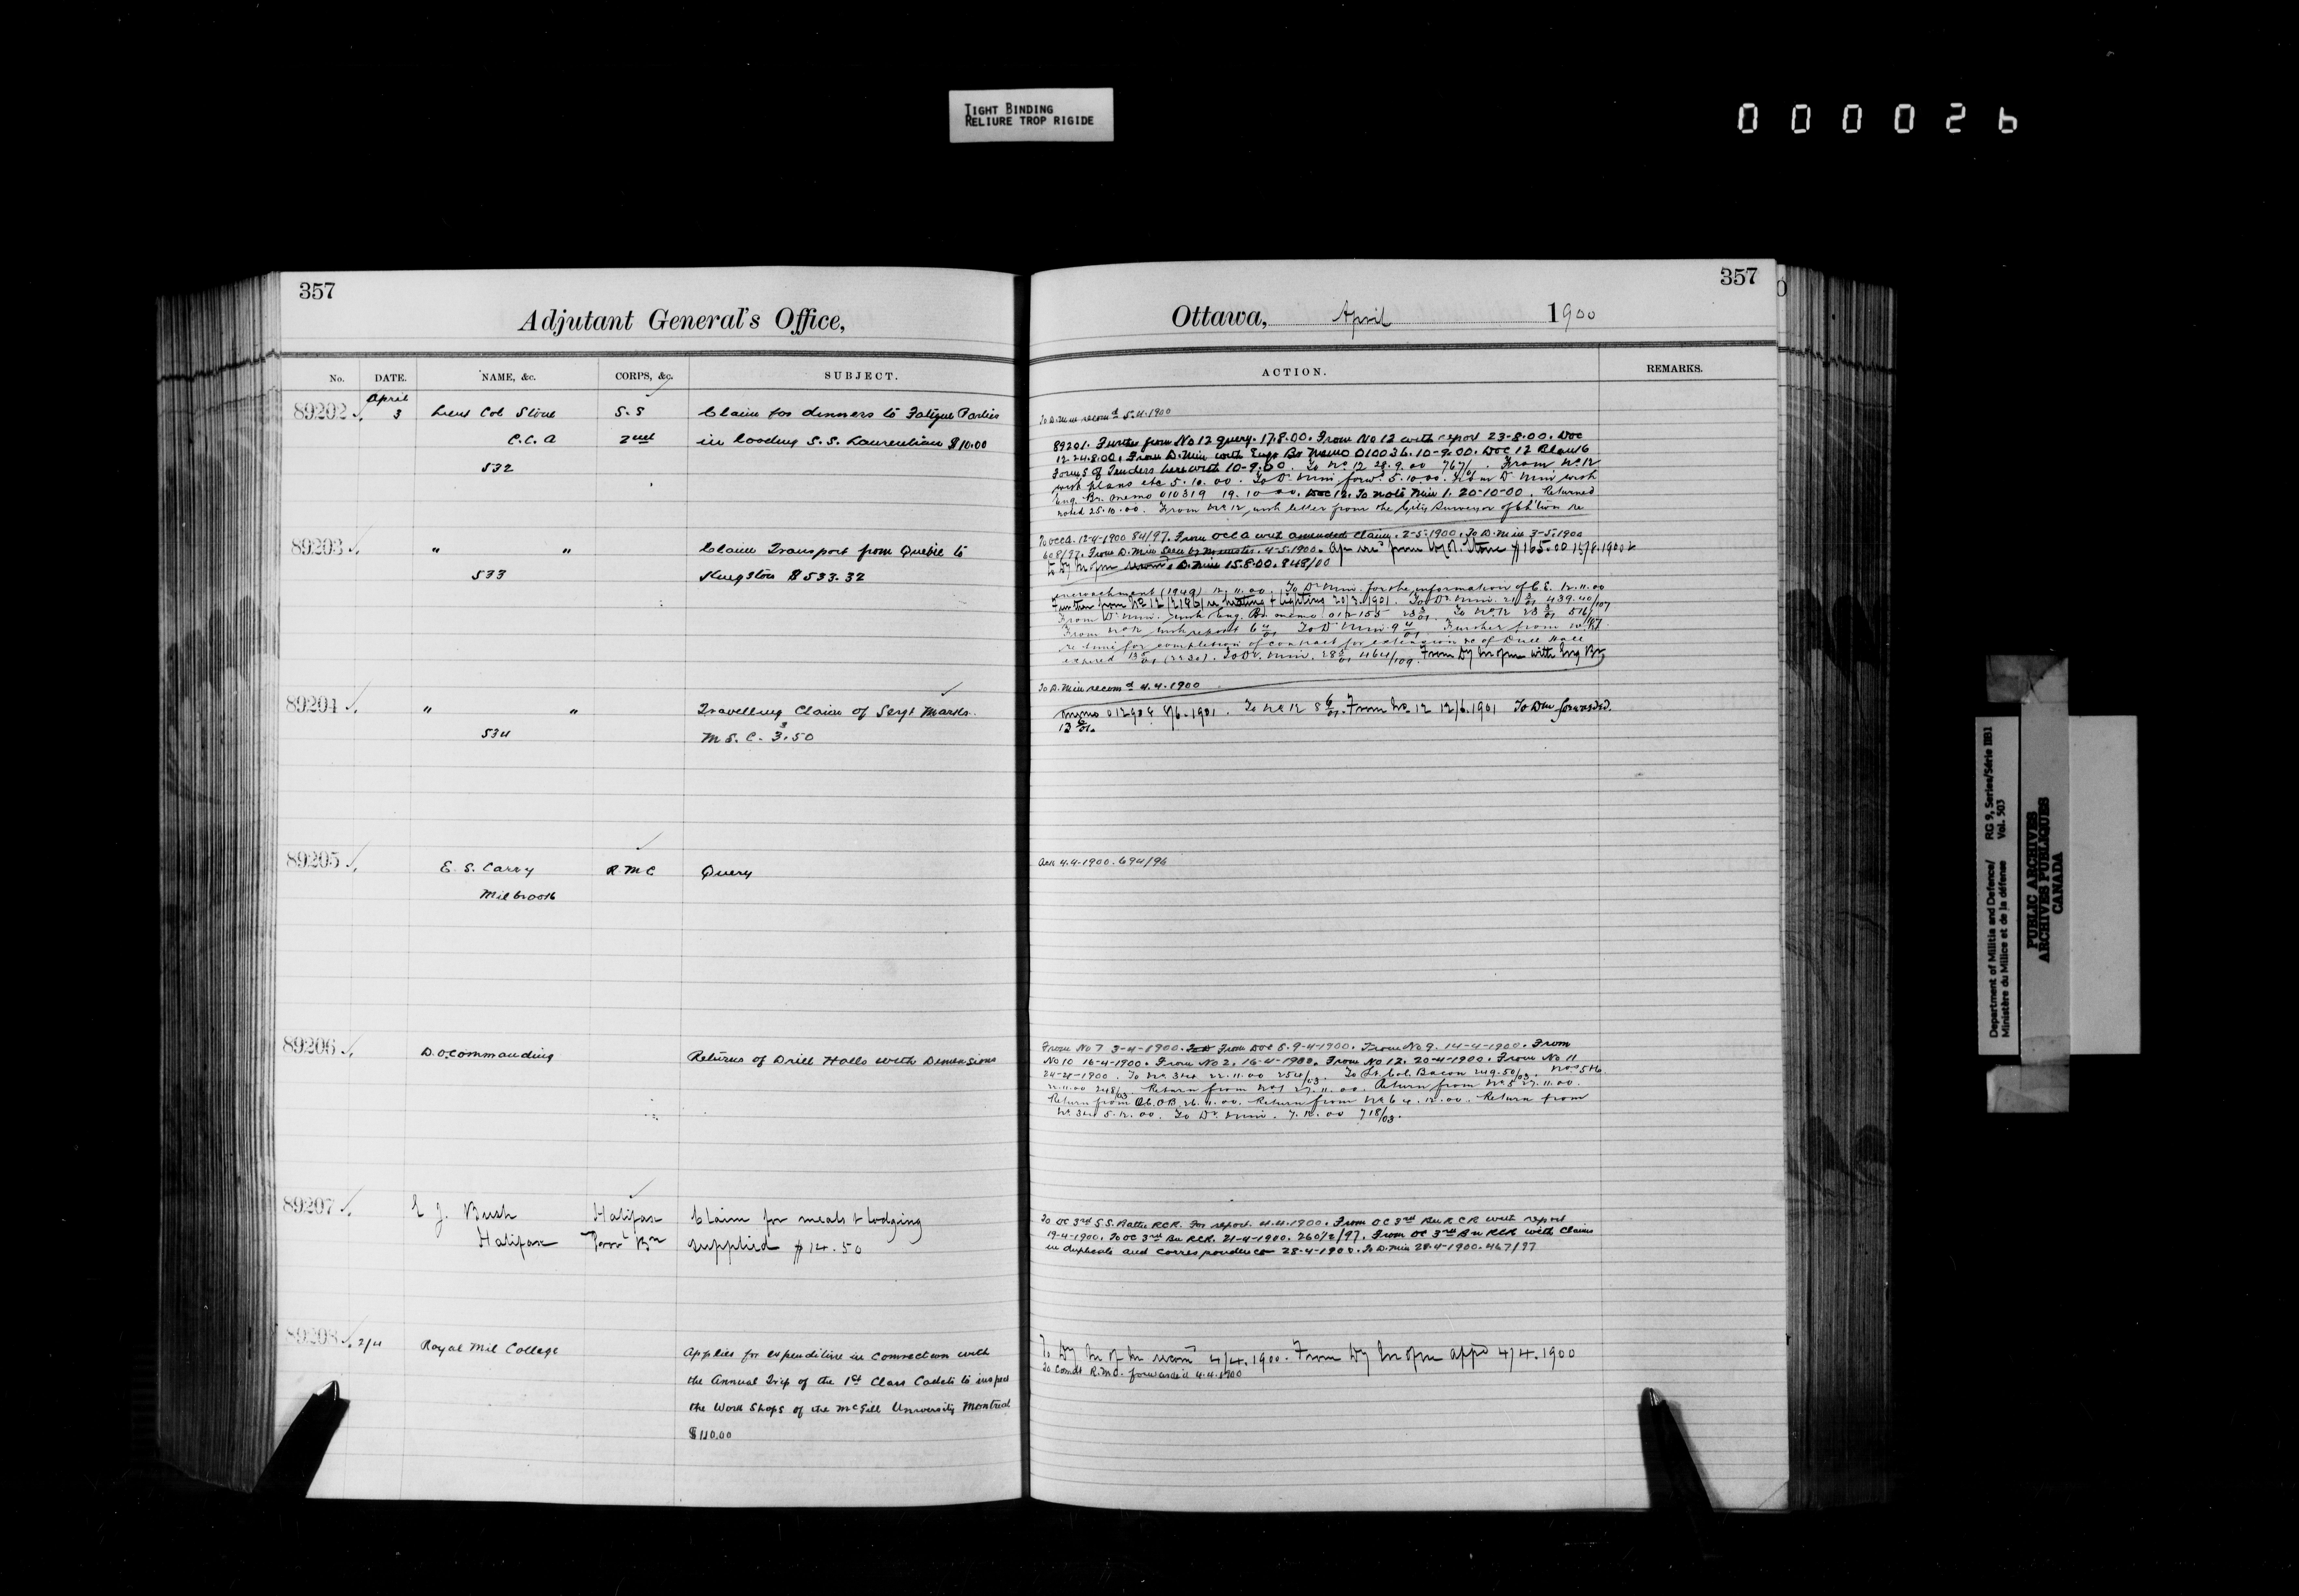 TIGHT BINDING
RELIURE TROP RIGIDE
000026
357
Adjutant General's Office,
No. DATE. NAME, &c. CORPS, &c. SUBJECT.
April
89202 3 Lieut Col Stone S.S Claim for dinners to Fatigue Parties
C.C.A 2nd in loading S.S. Laurentian $10.00
532
89203 " " Claim Transport from Quebec to
533 Kingston $533.32
89204 " " Travelling Claim of Sergt Marks.
534 M.S.C. 3.50
89205 E. S. Carry R.M.C Query
Milbrook
89206 D.O.Commanding Returns of Drill Halls with Dimensions
89207 E J. Bush Halifax Claim for meals & lodging
Halifax Provl Bn supplied $14.50
89208 2/4 Royal Mil College Applies for expenditure in connection with
the Annual Trip of the 1st Class Cadets to inspect
the Work Shops of the McGill University Montreal
$110.00
357
Ottawa, April 1900
ACTION. REMARKS.
To D.Min recomd 5.4.1900
89201. Further from No 12 query. 17.8.00. From No 12 with report 23-8.00. Doc
12.24.8.00. From D.Min with Eng Br Memo 010036. 10-9.00. Doc 12
Forms of Tenders herewith 10-9.00. To No 12 28.9.00 767/ . From No 12
with plans etc 5.10.00. To Dr Min forwd 5.10.00. From Dr Min with
Eng. Br. memo 010319 19.10.00. Doc 12. To note Min 1. 20-10-00. Returned
noted 25.10.00. From No 12 with letter from the City Surveyor of re
To OCCA. 12-4-1900 84/97. From OCCA with amended claim. 2-5-1900. To D.Min 3-5-1900
608/97. From D.Min 4-5-1900. from Stone $165.00 15/8.1900
to Dy M of M D.Min 15.8.00. 848/00
encroachment (1949) 12.11.00. To Dr Min. for the information of C.E. 12.11.00
Further from No 12 re heating & lighting 20/3.1901. To Dr Min.
From Dr Min. with Eng. Br memo 012155 To No 12
From No 12 with report To Dr Min. Further from No 12
re time for completion of contract for extension &c of Drill Hall
expired To Dr. Min. 464/109. From Dy M of M with Eng Br
To D.Min recomd 4.4.1900
memo 4/6.1901. To No 12 From No 12 12/6.1901 To DM forwarded.
Ack 4.4.1900. 694/96
From No 7 3-4-1900. From DOC 8. 9-4-1900. From No 9. 14-4-1900. From
No 10 16-4-1900. From No 2. 16-4-1900. From No 12. 20-4-1900. From No 11
24-4-1900. To No 3&4 22.11.00 To Lt. Col. Bacon 249.50/03. Nos 5&6
22.11.00 248/03. Return from No 1 27.11.00. Return from No 5 27.11.00.
Return from 26.11.00. Return from No 6 4.12.00. Return from
No 3&4 5.12.00. To Dr. Min. 7.12.00 718/03.
To OC 3rd S.S. Battn RCR. For report. 4.4.1900. From OC 3rd Bn RCR with report
19-4-1900. To OC 3rd Bn RCR. 21-4-1900. 260/2/97. From OC 3rd Bn RCR with Claims
in duplicate and correspondence 28-4-1900. To D.Min 28.4-1900. 467/97
To Dy M of M recomd 4/4.1900. From Dy M of M appd 4/4.1900
To Comdt R.M.C. forwarded 4.4.1900
Department of Militia and Defence/ RG 9, Series/Série IIB1
Ministère du Milice et de la défense Vol. 503
PUBLIC ARCHIVES
ARCHIVES PUBLIQUES
CANADA